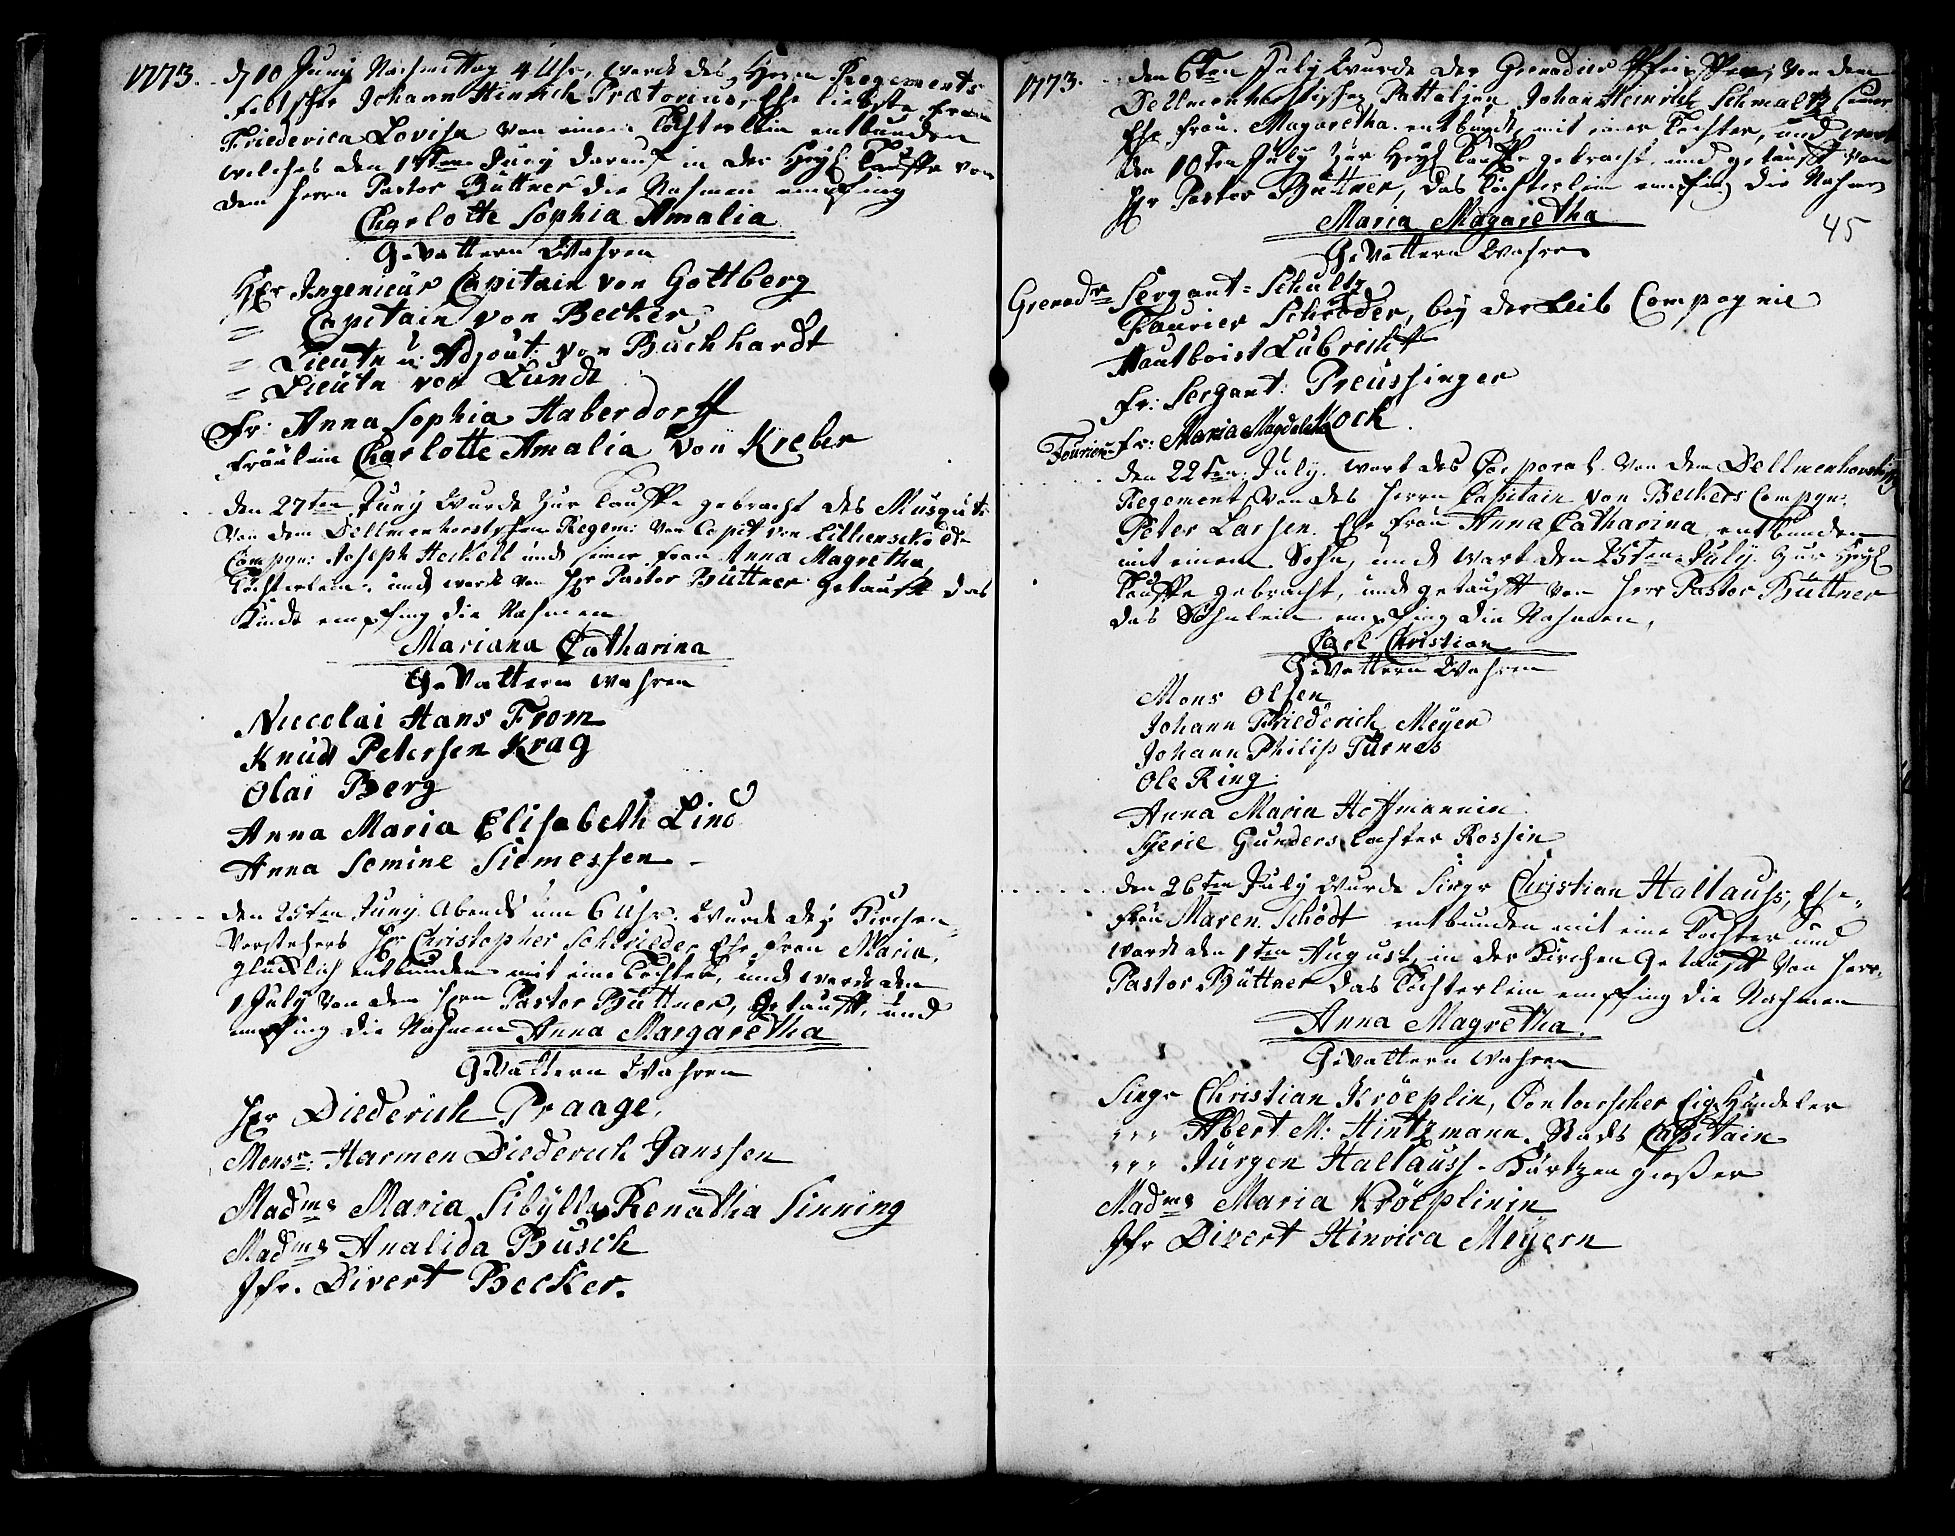 1773. d 10 Junÿ Nachmittag 4 Uhr, ward des Herrn Regements
feltscher Johann Hinrich Prætorius, Ehe liebste frau
Friederica Lovisa von einem Töchterlein entbunden
welches den 14ten Junÿ darauf in der Heÿl: Tauffe von
dem Herrn Pastor Büttner die Nahmen empfing
Charlotte Sophia Amalia
Gevattern Wahren
Hr Ingenieur Capitain von Gottberg
= Capitain von Becker
= Lieutn u: Adjout: von Buchhardt
= Lieutn von Lundt
Fr: Anna Sophia Haberdorff
fräulein Charlotte Amalia von Kreber
den 27ten Junÿ Wurde zur Tauffe gebracht des Musquti
von dem Dellmenhorstschen Regem: von Capit von Lillienskiöld
Compgn: Joseph Heckell und seiner frau Anna Magretha,
Töchterlein, und ward von Hr Pastor Büttner getaufft das
Kindt empfing die Nahmen
Mariana Catharina
Gevattern wahren
Niecolai Hans From
Knud Petersen Krag
Olai Berg
Anna Maria Elisabeth Lind
Anna Somine Siemessen
den 25ten Junÿ Abends um 6 Uhr: Wurde des Kirchen-
Vorstehers Hr Christopher Schrieder Ehe frau Maria,
glücklich entbunden mit eine Tochter, und wardt den
1 Julÿ von dem Hrn Pastor Büttner, Getaufft, und
empfing die Nahmen Anna Margaretha
Gevattern Wahren
Hr Diederich Praage,
Monsr: Harmen Diederich Janssen
Madms Maria Sibÿlla Renatha Sinning
Madms Analida Busch
Jfr. Divert Becker.
1773. den 6ten Julÿ Wurde der Grenadier Pfeiffer, von dem
Dellmenhorstisschen Battaljon Johan Heinrich Schmaltz seine
Ehe frau. Magaretha. entbunden mit einer Tochter, und ward
den 10ten Julÿ zur Heÿl Tauffe gebracht und getaufft von
Hr Pastor Büttner, das Töchterlein empfing die Nahmen
Maria Magaretha
45
Gevattern Wahren
Grenadr Sergant=Schultz
Faurier Schröder, beÿ der Leib Compagnie
Hautboist Lübricht
fr: Sergant: Preussinger
Fourier fr: Maria Magdalena Kock.
den 22ten Julÿ. wart des Corporal von dem Dellmenhorstischen
Regement, von des Herrn Capitain von Beckers Compgn:
Peter Larsen. Ehe frau Anna Catharina entbunden
mit einem Sohn, und wart den 25ten Julÿ zur Heÿl
Tauffe gebracht, und getaufft von Herr Pastor Büttner
das Söhnlein empfing die Nahmen,
Carl Christian
Gevattern Wahren
Mons Olsen
Johann Friederich Meÿer
Johann Philip Türnes
Ole Ring.
Anna Maria Hoffmannin
Gunders tochter Rossin
den 26ten Julÿ Wurde Singr Christian Haltauss, Ehe-
frau Maren Schödt entbunden mit eine Tochter und
wardt den 1ten August, in der Kirchen Getaufft von Herr
Pastor Büttner das Töchterlein empfing die Nahmen
Anna Magretha.
Gevattern wahren
Singr Christian Kröeplin, Contoischer Eig Händeler
" " " Albert M: Hintzmann. Stads Capitain
" " " Jürgen Haltauss - Kürtzen gießer
Madms Maria Kröeplinin
Jfr Divert Hinrica Meÿern